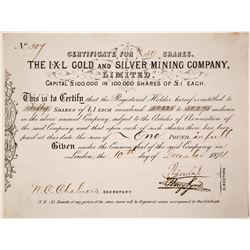 No 307
CERTIFICATE FOR 50 SHARES.
THE I.X.L GOLD AND SILVER MINING COMPANY,
LIMITED.
CAPITAL £100,000 IN 100,000 SHARES OF £1 EACH.
This is to Certify that the Registered Holder hereof is entitled to
Fifty SHARES of £1 EACH numbered
in the above named Company, subject to the Articles of Association of
the said Company, and that upon each of such shares there has been
paid at this date the sum of £ One POUND in full
Given under the Common Seal of the said Company in
London, the 10th day of December 1871
DIRECTORS
W. C. Chalmers, SECRETARY.
N.B. No Transfer of any portion of the above shares will be registered unless accompanied by the Certificate.